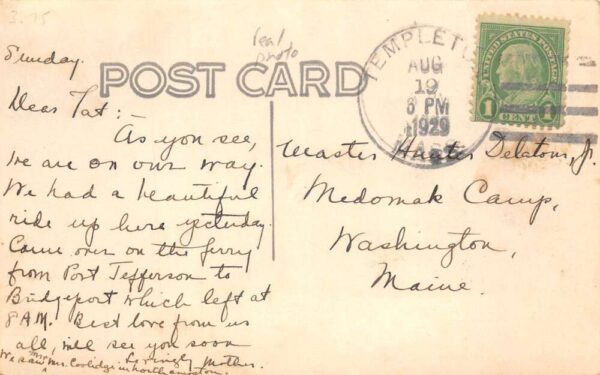 3.75
real
photo
POST CARD
TEMPLETON
AUG
19
6 PM
1929
MASS.
UNITED STATES POSTAGE
1 CENT 1
Sunday.
Dear Tat:-
As you see,
we are on our way.
We had a beautiful
ride up here yesterday.
Came over on the ferry
from Port Jefferson to
Bridgeport which left at
8 A.M. Best love from us
all, will see you soon
Lovingly Mother.
We saw Mrs. Coolidge in Northampton.
Master Hunter Delatour, Jr.
Medomak Camp,
Washington,
Maine.